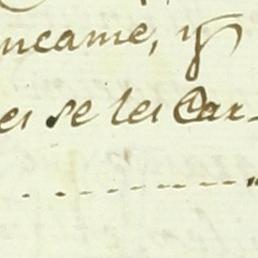 ncame, y
es se les Car-